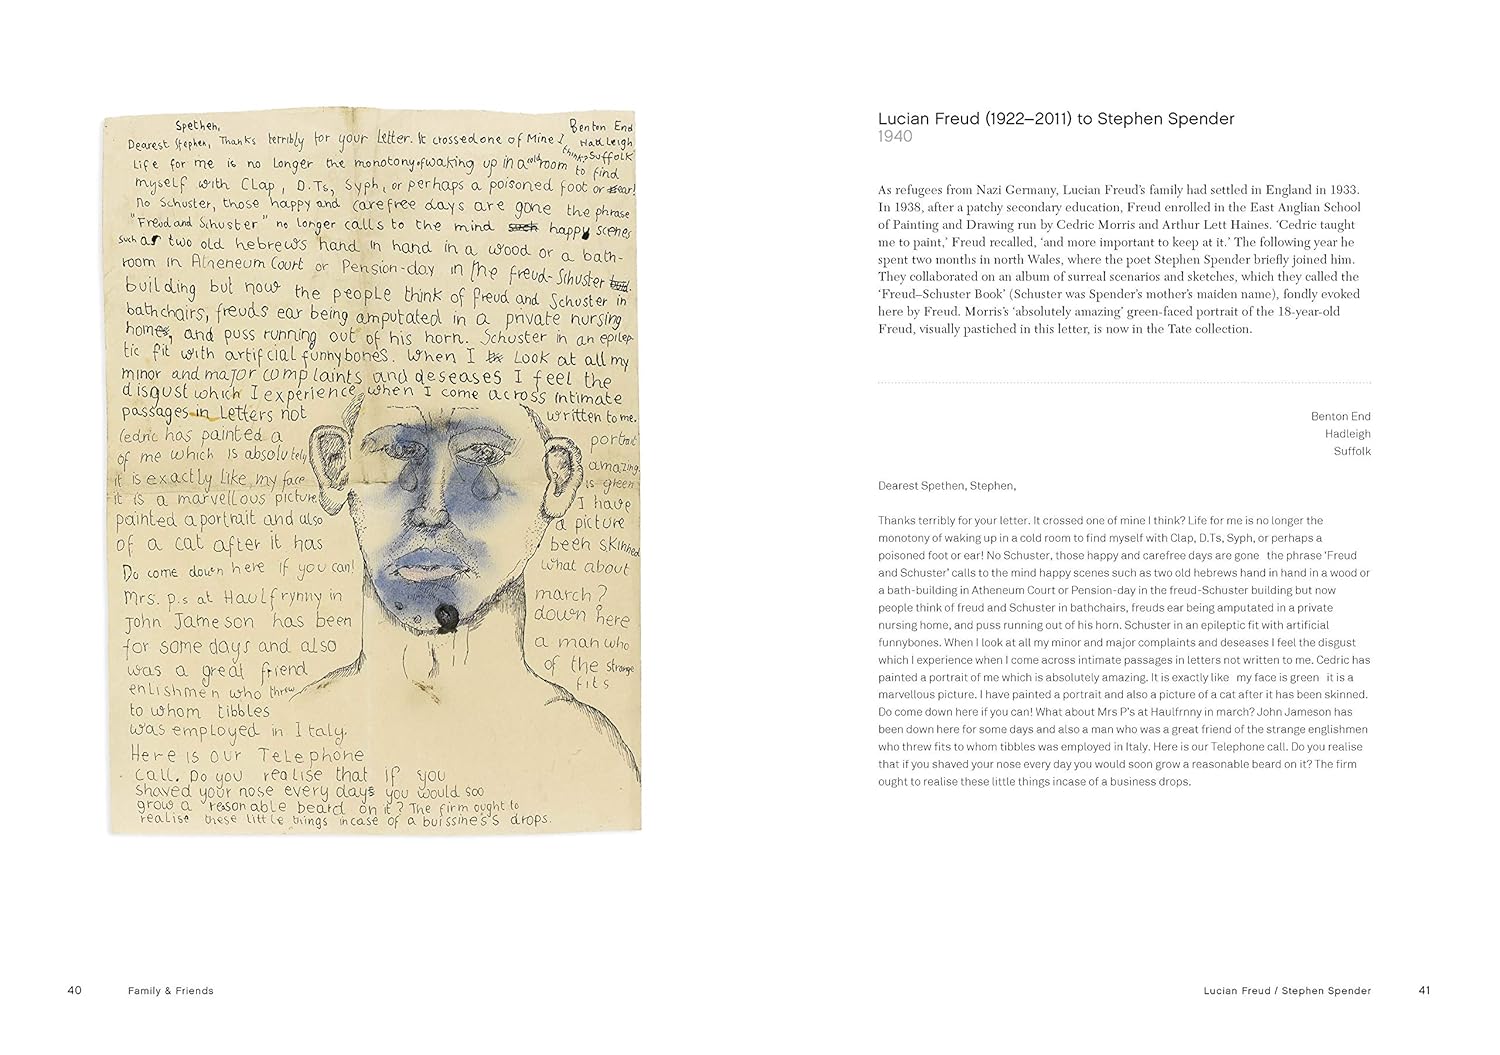 Spethen,
Benton End
Dearest Stephen, Thanks terribly for your letter. It crossed one of Mine I
Hadleigh
think? Suffolk
Life for me is no longer the monotony of waking up in a cold room to find
myself with Clap, D.Ts, Syph, or perhaps a poisoned foot or ear!
no Schuster, those happy and carefree days are gone the phrase
"Freud and Schuster" no longer calls to the mind such happy scenes
such as two old hebrews hand in hand in a wood or a bath-
room in Atheneum Court or Pension-day in the freud-Schuster
building but now the people think of freud and Schuster in
bathchairs, freuds ear being amputated in a private nursing
home, and puss running out of his horn. Schuster in an epilep
tic fit with artificial funnybones. When I look at all my
minor and major complaints and deseases I feel the
disgust which I experience when I come across intimate
passages in letters not written to me.
Cedric has painted a portrait
of me which is absolutely amazing.
it is exactly like my face is green
it is a marvellous picture I have
painted a portrait and also a picture
of a cat after it has been skinned
Do come down here if you can! what about
Mrs. p.s at Haulfrynny in march?
John Jameson has been down here
for some days and also a man who
was a great friend of the strange
enlishmen who threw fits
to whom tibbles
was employed in Italy.
Here is our Telephone
call. Do you realise that if you
shaved your nose every days you would soo
grow a reasonable beard on it? The firm ought to
realise these little things incase of a buissiness drops.
40
Family & Friends
Lucian Freud (1922–2011) to Stephen Spender
1940
As refugees from Nazi Germany, Lucian Freud's family had settled in England in 1933.
In 1938, after a patchy secondary education, Freud enrolled in the East Anglian School
of Painting and Drawing run by Cedric Morris and Arthur Lett Haines. 'Cedric taught
me to paint,' Freud recalled, 'and more important to keep at it.' The following year he
spent two months in north Wales, where the poet Stephen Spender briefly joined him.
They collaborated on an album of surreal scenarios and sketches, which they called the
'Freud–Schuster Book' (Schuster was Spender's mother's maiden name), fondly evoked
here by Freud. Morris's 'absolutely amazing' green-faced portrait of the 18-year-old
Freud, visually pastiched in this letter, is now in the Tate collection.
Benton End
Hadleigh
Suffolk
Dearest Spethen, Stephen,
Thanks terribly for your letter. It crossed one of mine I think? Life for me is no longer the
monotony of waking up in a cold room to find myself with Clap, D.Ts, Syph, or perhaps a
poisoned foot or ear! No Schuster, those happy and carefree days are gone the phrase 'Freud
and Schuster' calls to the mind happy scenes such as two old hebrews hand in hand in a wood or
a bath-building in Atheneum Court or Pension-day in the freud-Schuster building but now
people think of freud and Schuster in bathchairs, freuds ear being amputated in a private
nursing home, and puss running out of his horn. Schuster in an epileptic fit with artificial
funnybones. When I look at all my minor and major complaints and deseases I feel the disgust
which I experience when I come across intimate passages in letters not written to me. Cedric has
painted a portrait of me which is absolutely amazing. It is exactly like my face is green it is a
marvellous picture. I have painted a portrait and also a picture of a cat after it has been skinned.
Do come down here if you can! What about Mrs P's at Haulfrnny in march? John Jameson has
been down here for some days and also a man who was a great friend of the strange englishmen
who threw fits to whom tibbles was employed in Italy. Here is our Telephone call. Do you realise
that if you shaved your nose every day you would soon grow a reasonable beard on it? The firm
ought to realise these little things incase of a business drops.
Lucian Freud / Stephen Spender
41